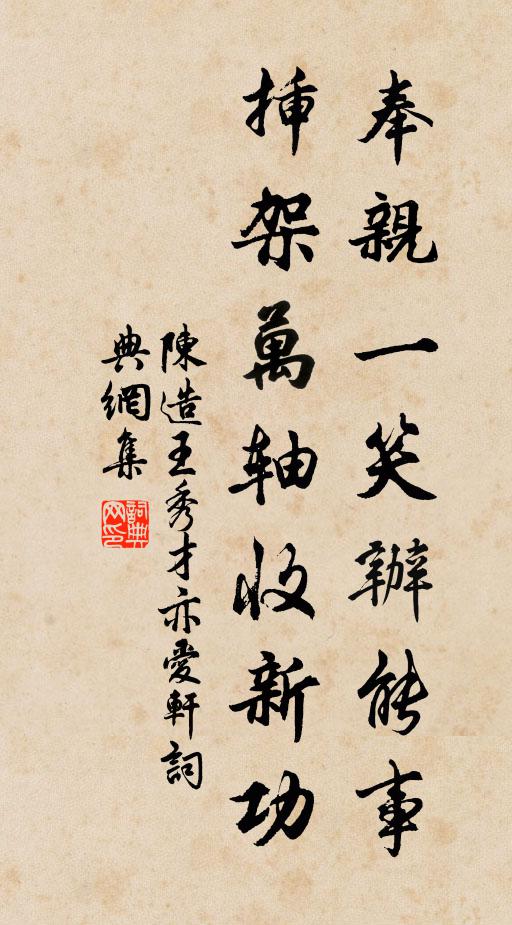 奉親一笑辦能事
揷架萬轴收新功
陳造王秀才亦愛軒詞
典網集
詞典網印